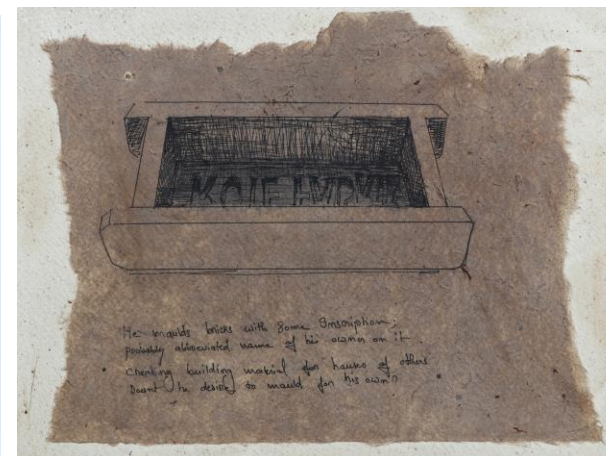 He moulds bricks with Some Inscription;
probably abbreviated name of his owner on it.
Creating building material for houses of others
Doesnt he desires to mould for his own?